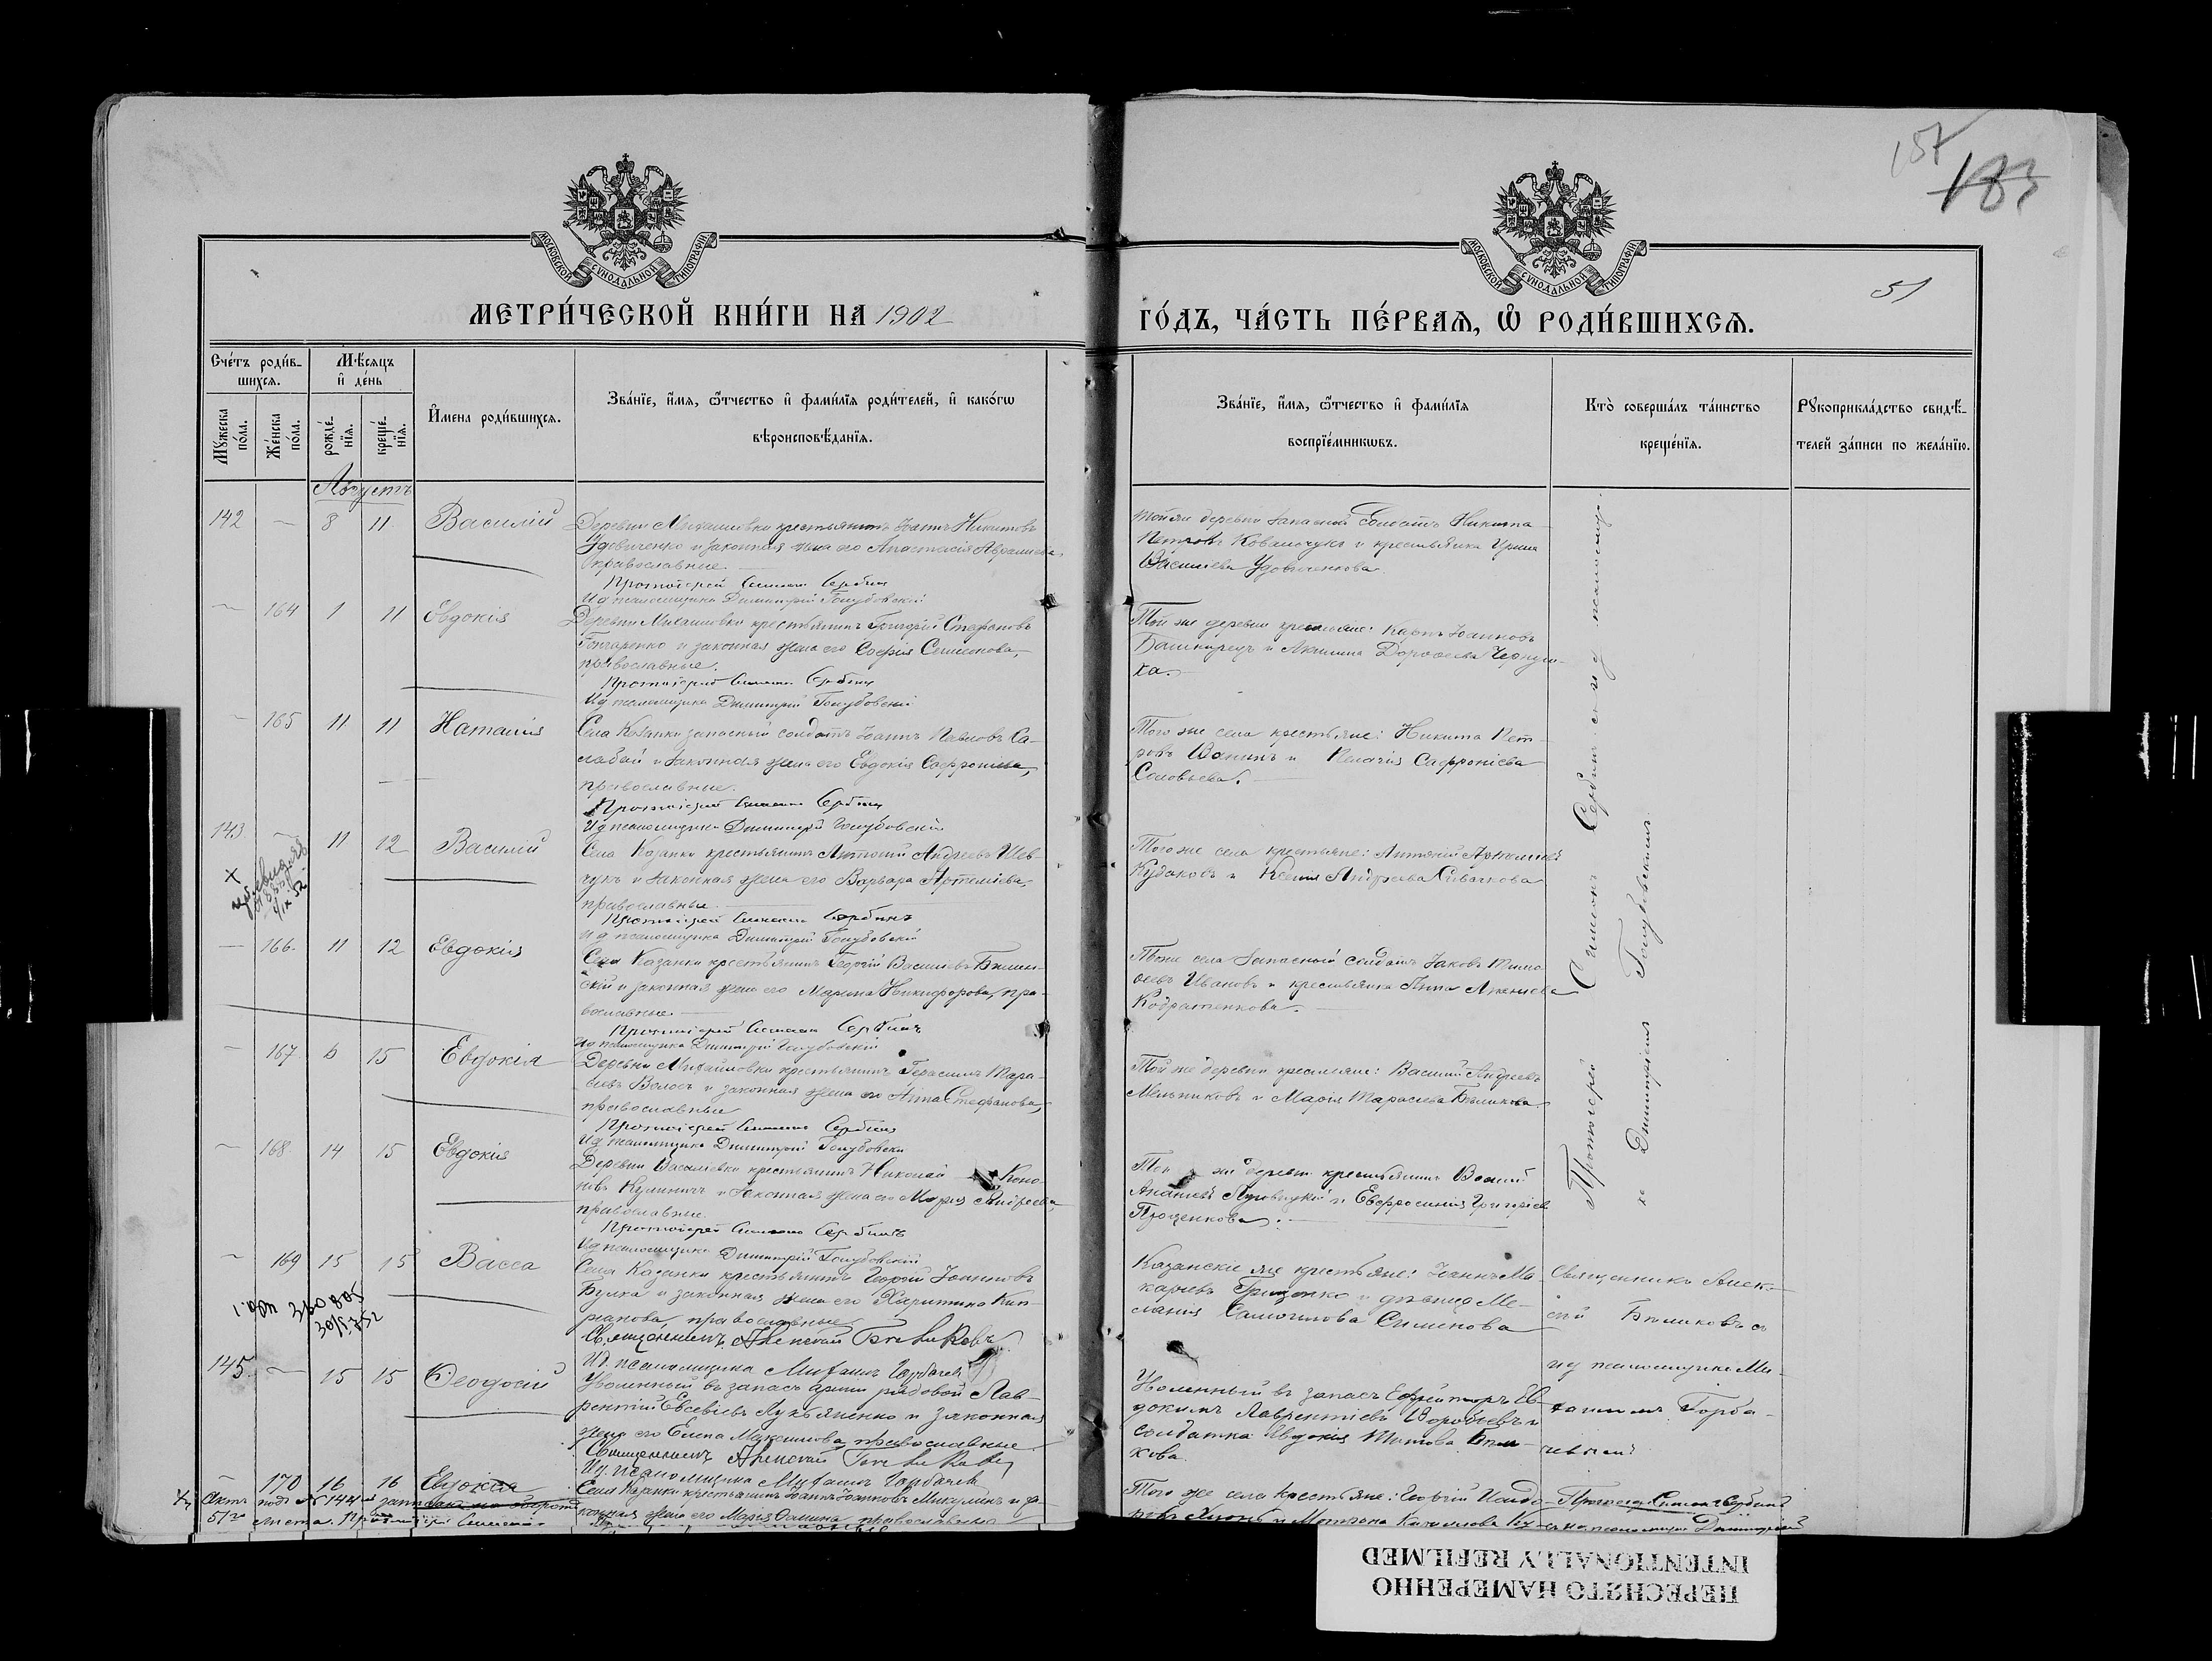 157
183
51
МОСКОВСКОЙ СѴНОДАЛЬНОЙ ТИПОГРАФІИ
МОСКОВСКОЙ СѴНОДАЛЬНОЙ ТИПОГРАФІИ
МЕТРИ́ЧЕСКОЙ КНИ́ГИ НА 1902
ГО́ДЪ, ЧА́СТЬ ПЕ́РВАѦ, Ѡ҆ РОДИ́ВШИХСѦ.
Сче́тъ роди́в-
шихсѧ.
Мꙋ́жеска по́ла.
Же́нска по́ла.
Мѣ́сѧцъ
и҆ де́нь
рожде́-
нїѧ.
креще́-
нїѧ.
И҆мена роди́вшихсѧ.
Зва́нїе, и҆́мѧ, ѻ҆́тчество и҆ фами́лїѧ роди́телей, и҆ како́гѡ
вѣроисповѣ́данїѧ.
Зва́нїе, и҆́мѧ, ѻ҆́тчество и҆ фами́лїѧ
воспрїе́мникѡвъ.
Кто̀ соверша́лъ та́инство
креще́нїѧ.
Рꙋкоприкла́дство свидѣ́-
телей за́писи по жела́нїю.
Августъ
142 — 8 11 Василій
Деревни Михайловки крестьянинъ Іоаннъ Никитовъ
Удовиченко и законная жена его Анастасія Авраміева,
православные.
Протоіерей Симеонъ Сербинъ
И д псаломщика Димитрій Голубовскій
Той же деревни запасный солдатъ Никита
Петровъ Ковальчукъ и крестьянка Ирина
Васильева Удовиченкова.
— 164 1 11 Евдокія
Деревни Михайловки крестьянинъ Григорій Стефановъ
Гончаренко и законная жена его Софія Симеонова,
православные.
Протоіерей Симеонъ Сербинъ
И д псаломщика Димитрій Голубовскій
Той же деревни крестьяне: Карпъ Іоанновъ
Башкирецъ и Акилина Дорофеева
ха.
— 165 11 11 Наталія
Села Казанки запасный солдатъ Іоаннъ Павловъ Са-
лабай и законная жена его Евдокія Софроніева,
православные.
Протоіерей Симеонъ Сербинъ
И д псаломщика Димитрій Голубовскій
Того же села крестьяне: Никита Пет-
ровъ и Пелагія Сафроніева
Соловьева.
143 — 11 12 Василій
Села Казанки крестьянинъ Антоній Андреевъ Шев-
чукъ и законная жена его Варвара Артеміева,
православные.
Протоіерей Симеонъ Сербинъ
И д псаломщика Димитрій Голубовскій
Того же села крестьяне: Антоній
и Ксенія Андреева Сивачкова
— 166 11 12 Евдокія
Села Казанки крестьянинъ Георгій Васильевъ Билин-
скій и законная жена его Марина Никифорова, пра-
вославные.
Протоіерей Симеонъ Сербинъ
И д псаломщика Димитрій Голубовскій
Того же села запасный солдатъ Іаковъ Тимо
феевъ Ивановъ и крестьянка Анна
Кодратенкова.
— 167 6 15 Евдокія
Деревни Михайловки крестьянинъ Герасимъ Тара-
сіевъ Волосъ и законная жена его Анна Стефанова,
православные
Протоіерей Симеонъ Сербинъ
И д псаломщика Димитрій Голубовскій
Той же деревни крестьяне: Василій Андреевъ
Мельниковъ и Марія Тарасіева Бѣликова.
— 168 14 15 Евдокія
Деревни Василіевки крестьянинъ Николай Коно-
новъ Кулиничъ и законная жена его Марія Андреева,
православные.
Протоіерей Симеонъ Сербинъ
И д псаломщика Димитрій Голубовскій
Той же деревни крестьянинъ Василій
Ананіевъ и Евфросинія Григоріева
Проценкова.
Протоіерей Симеонъ Сербинъ съ и д псаломщ.
Димитріемъ Голубовскимъ.
— 169 15 15 Васса
Села Казанки крестьянинъ Георгій Іоанновъ
Булка и законная жена его Харитина Кип-
ріанова, православные
Священникъ Алексій Бѣликовъ
И.д. псаломщика Михаилъ Горбачев
Казанскіе же крестьяне: Іоаннъ Ма-
каріевъ Гриценко и дѣвица Ме-
ланія Самоилова Сименова
Священникъ Алек-
сій Бѣликовъ съ
и д псаломщика Ми-
хаиломъ Горба-
чевымъ
145. — 15 15 Ѳеодосій
Уволенный въ запасъ арміи рядовой Лав-
рентій Евсевіевъ Лукьяненко и законная
жена его Елена Максимова, православные
Священникъ Алексій Бѣликовъ
И.д. псаломщика Михаилъ Горбачев
Уволенный въ запасъ Ефрейторъ Ев-
докимъ Лаврентіевъ Воробьевъ и
солдатка Евдокія Титова Бѣли-
кова.
— 170 16 16 Евдокія
Села Казанки крестьянинъ Іоаннъ Іоанновъ Микулинъ и за-
конная жена его Марія православные
Того же села крестьяне: Георгій Исидо-
Протоіерей Симеонъ Сербинъ
Актъ подъ № 144 й записанъ на оборотѣ
51го листа. Протоіерей Симеонъ
ПЕРЕСНЯТО НАМЕРЕННО
INTENTIONALLY REFILMED